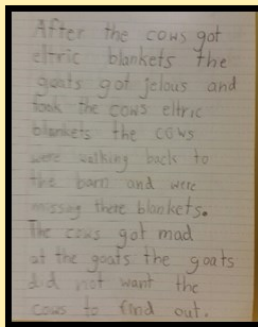 After the cows got
eltric blankets the
goats got jelous and
took the cows eltric
blankets the cows
were walking back to
the barn and were
missing there blankets.
The cows got mad
at the goats the goats
did not want the
cows to find out.